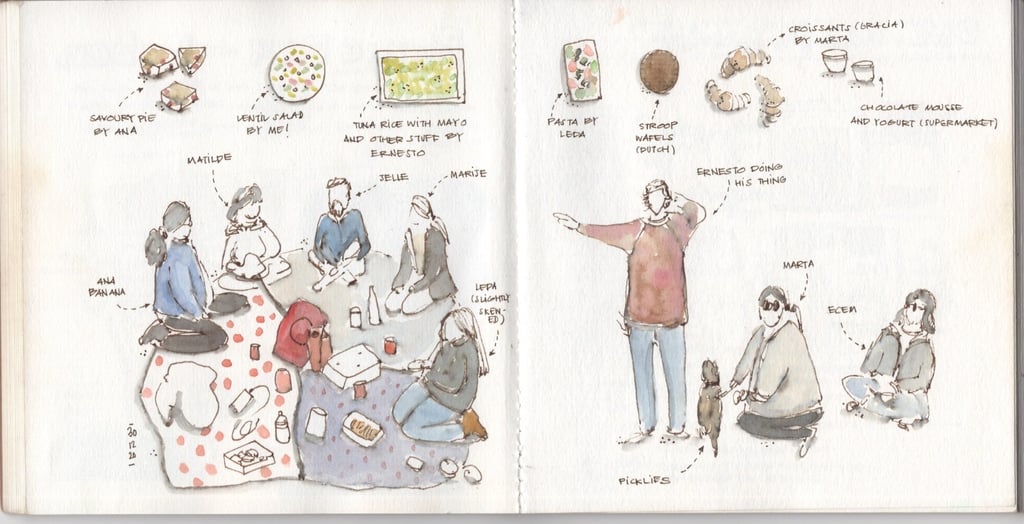 SAVOURY PIE
BY ANA
LENTIL SALAD
BY ME!
TUNA RICE WITH MAYO
AND OTHER STUFF BY
ERNESTO
PASTA BY
LEDA
STROOP
WAFELS
(DUTCH)
CROISSANTS (GRACIA)
BY MARTA
CHOCOLATE MOUSSE
AND YOGURT (SUPERMARKET)
MATILDE
JELLE
MARIJE
ANA
BANANA
LEDA
(SLIGHTLY
SKEW-
ED)
ERNESTO DOING
HIS THING
MARTA
ECEM
PICKLIES
30
12
20